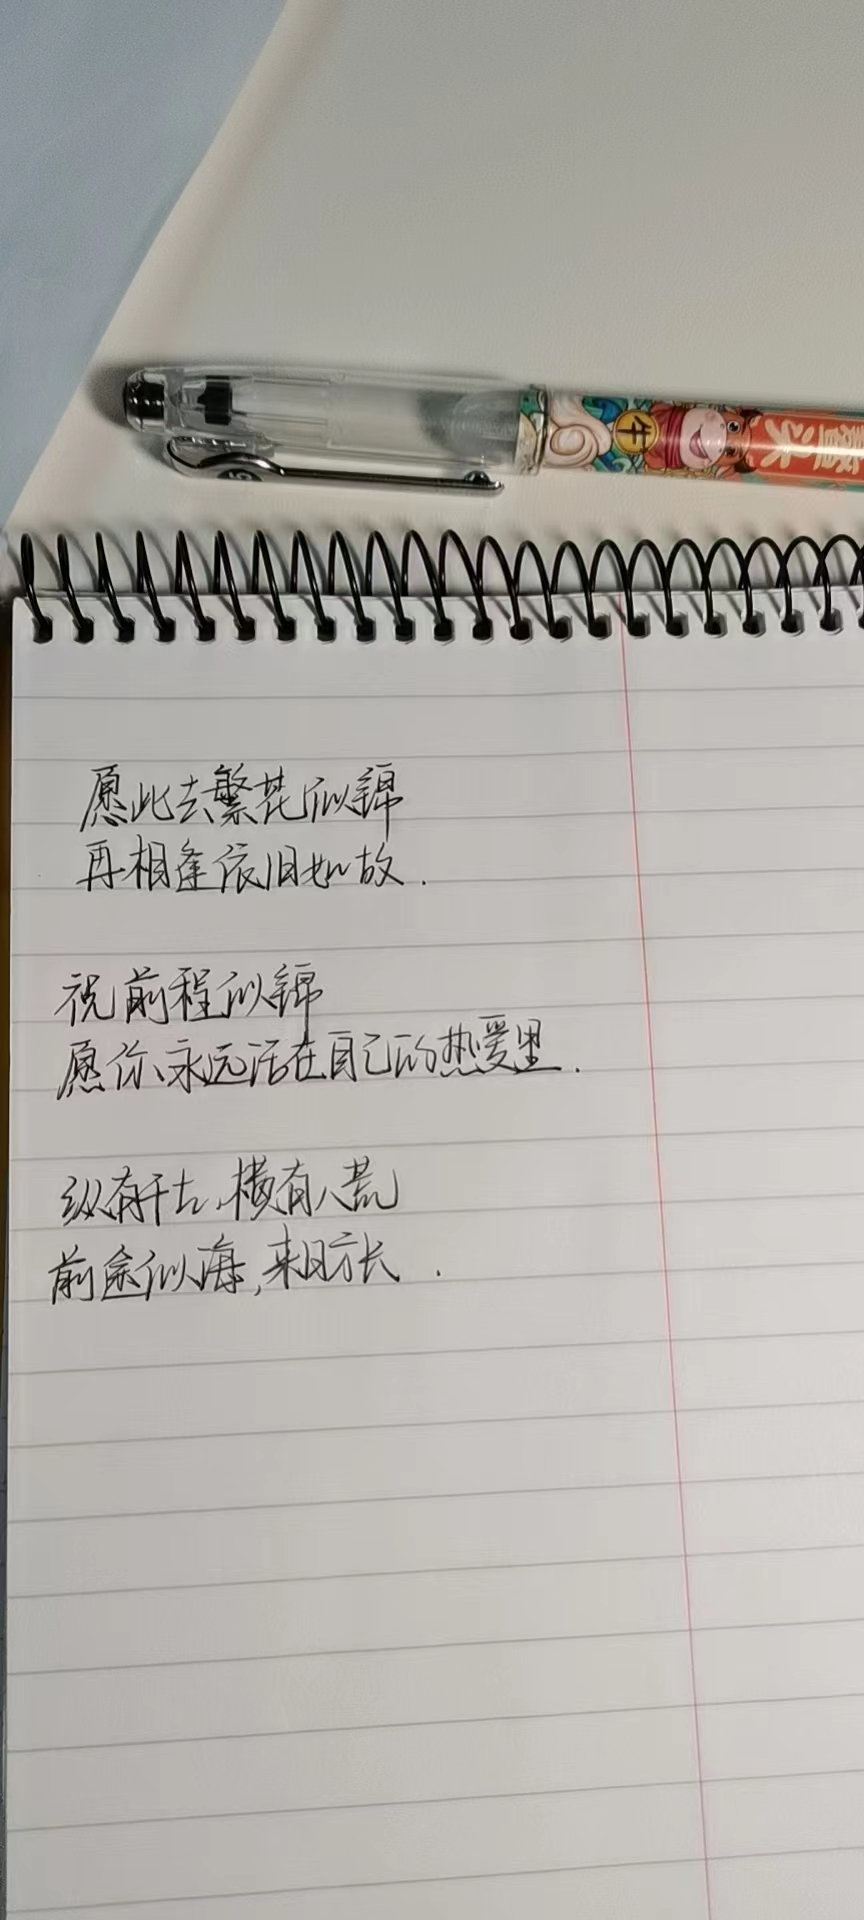 牛
愿此去繁花似锦
再相逢依旧如故.
祝前程似锦
愿你、永远活在自己的热爱里.
纵有千古,横有八荒
前途似海,来日方长.